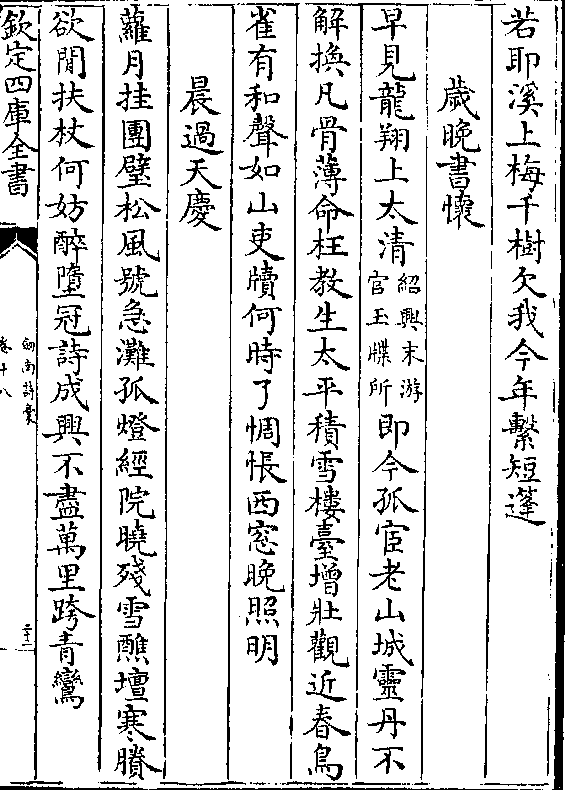 若耶溪上梅千樹欠我今年繫短蓬
歲晚書懷
早見龍翔上太清紹興末游官玉牒所即今孤宦老山城靈丹不
解換凡骨薄命枉教生太平積雪樓臺增壯觀近春鳥
雀有和聲如山吏牘何時了惆悵西窓晚照明
晨過天慶
蘿月挂團璧松風號急灘孤燈經院曉殘雪醮壇寒賸
欲閒扶杖何妨醉墮冠詩成興不盡萬里跨青鸞
欽定四庫全書
劍南詩稾
卷十八
二十三